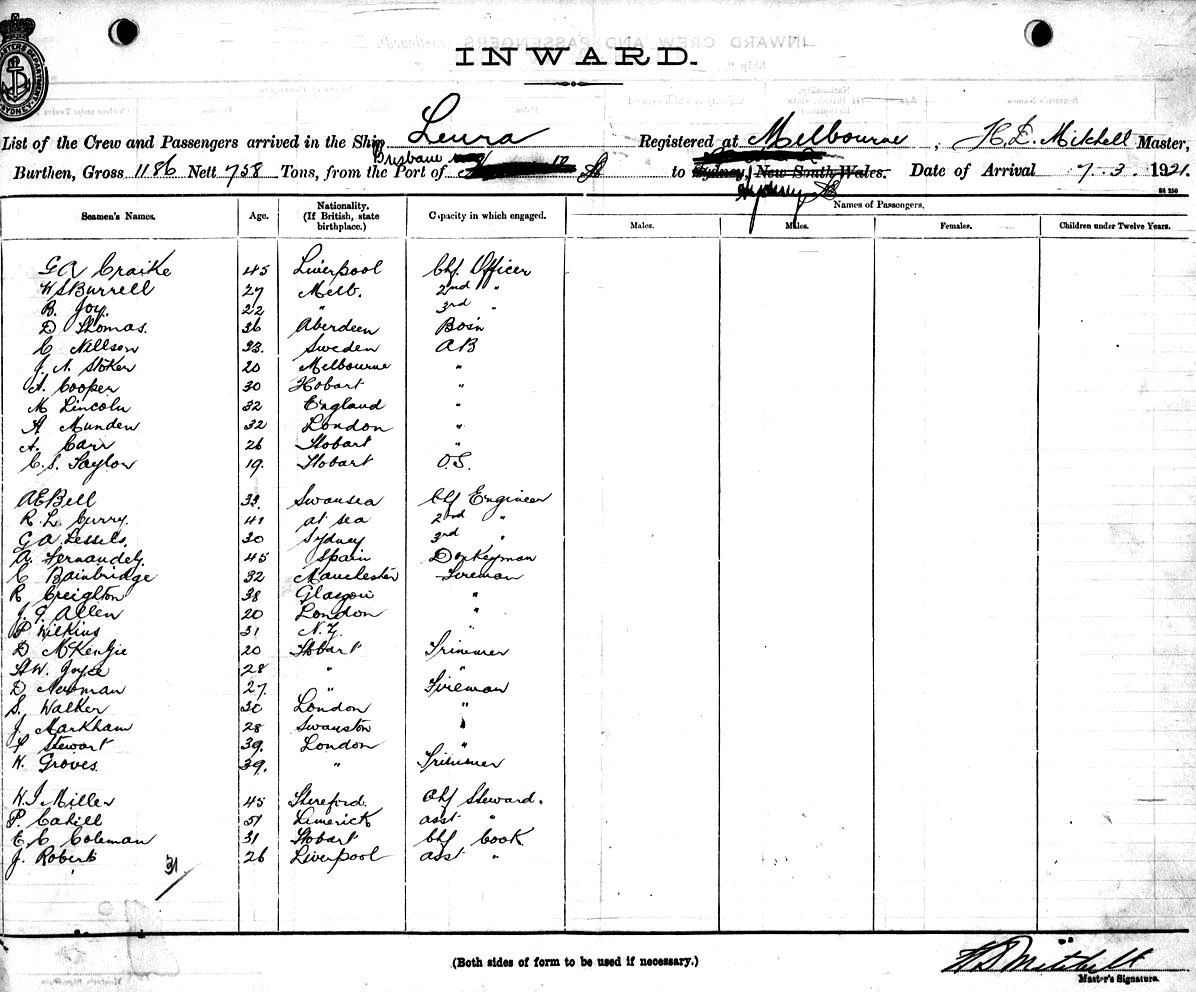 INWARD.
List of the Crew and Passengers arrived in the Ship Leura Registered at Melbourne, H.E. Mitchell Master,
Burthen, Gross 1186 Nett 758 Tons, from the Port of Brisbane to Sydney, New South Wales. Date of Arrival 7.3.1921.
Sydney
Names of Passengers.
Seamen's Names. Age. Nationality. (If British, state birthplace.) Capacity in which engaged. Males. Males. Females. Children under Twelve Years.
G A Craike 45 Liverpool Chf. Officer
W S Burrell 27 Melb. 2nd "
B. Joy. 22 " 3rd "
D Thomas. 36 Aberdeen Bosn
C Nillson 33. Sweden AB
J. N. Stoker 20 Melbourne "
A. Cooper 30 Hobart "
M Lincoln 32 England "
A Munden 32 London "
A. Carr 26 Hobart "
C. S. Taylor 19. Hobart O.S.
A E Bell 39. Swansea Chf Engineer
R. L. Curry. 41 at sea 2nd "
G A. Lessels. 30 Sydney 3rd "
A. Fernandez. 45 Spain Donkeyman
C Bainbridge 32 Manchester Fireman
R Creighton 38 Glasgow "
J. G. Allen 20 London "
P Wilkins 31 N.Z. "
D McKenzie 20 Hobart Trimmer
H W. Joyce 28 " "
D Newman 27. " Fireman
S. Walker 30 London "
J. Markham 28 Swanston "
F Stewart 39. London "
H. Groves. 39. " Trimmer
W. J Miller 45 Hereford. Chf Steward.
P. Cahill 51 Limerick asst "
E. C. Coleman 31 Hobart Chf Cook
J. Roberts 26 Liverpool asst "
31
(Both sides of form to be used if necessary.)
H E Mitchell
Master's Signature.